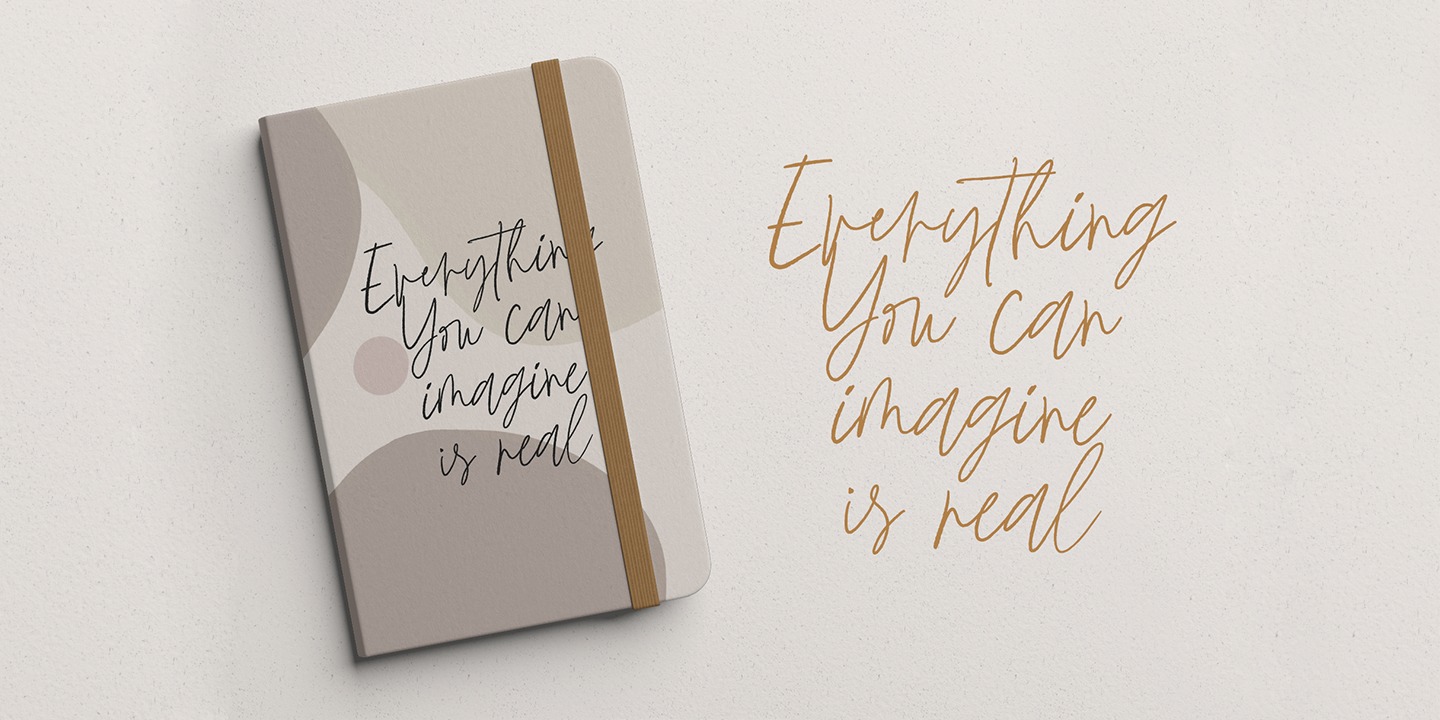 Everything
You can
imagine
is real
Everything
You can
imagine
is real